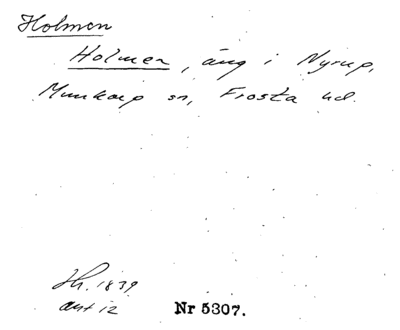 Holmen
Holmen, äng i Nyrup,
Munkarp sn, Frosta hd.
Sk. 1839
akt 12
Nr 5307.